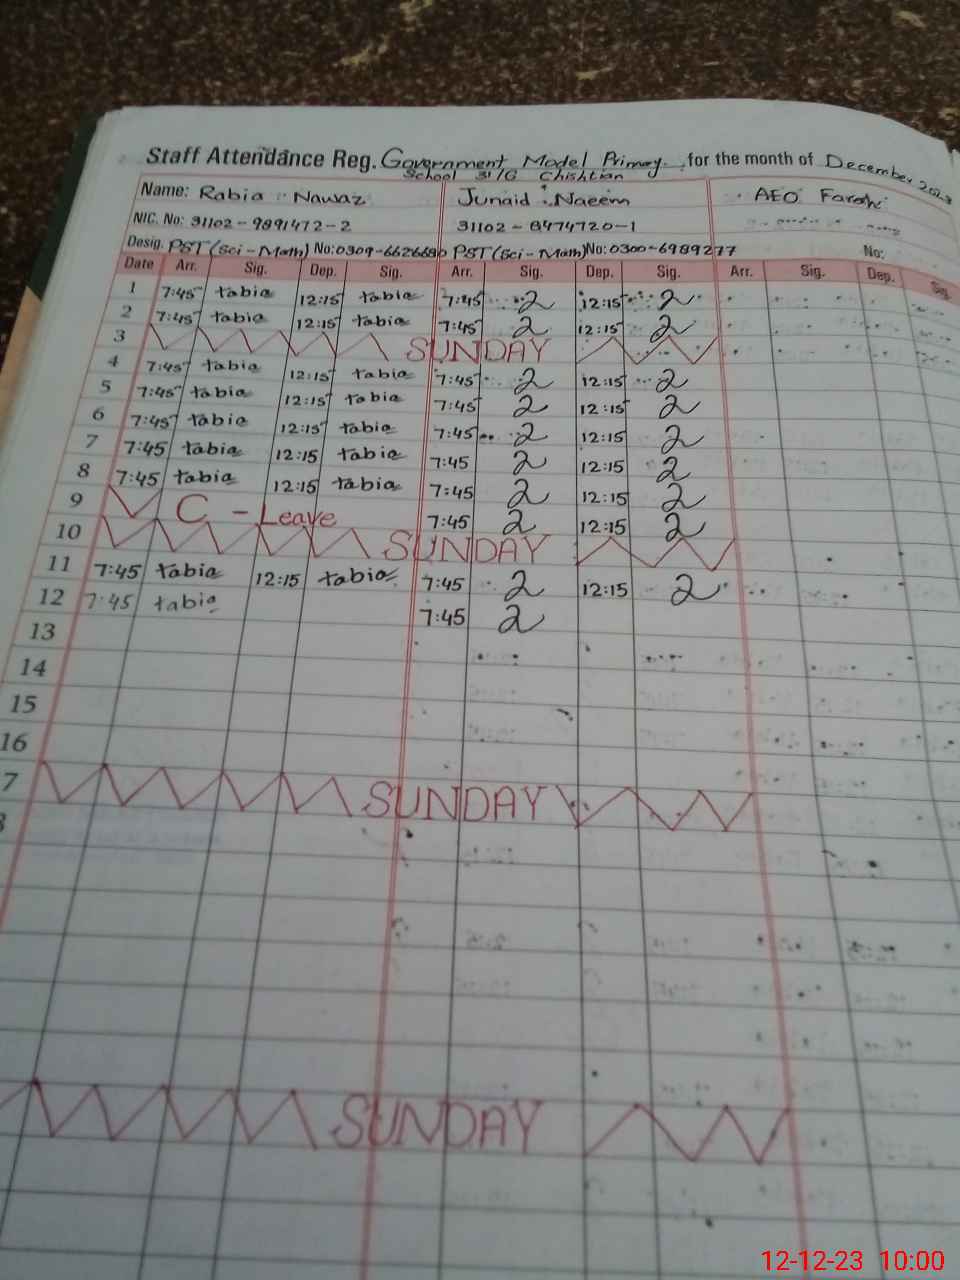 Staff Attendance Reg. Government Model Primary for the month of December 2023
School 31/G Chishtian
Name: Rabia Nawaz Junaid Naeem AEO Farah
NIC. No: 31102-9891472-2 31102-8474720-1
Desig. PST (Sci-Math) No: 0309-6626680 PST (Sci-Math) No: 0300-6989277 No:
Date Arr. Sig. Dep. Sig. Arr. Sig. Dep. Sig. Arr. Sig. Dep. Sig.
1 7:45 tabia 12:15 tabia 7:45 12:15
2 7:45 tabia 12:15 tabia 7:45 12:15
3 SUNDAY
4 7:45 tabia 12:15 tabia 7:45 12:15
5 7:45 tabia 12:15 tabia 7:45 12:15
6 7:45 tabia 12:15 tabia 7:45 12:15
7 7:45 tabia 12:15 tabia 7:45 12:15
8 7:45 tabia 12:15 tabia 7:45 12:15
9 C - Leave 7:45 12:15
10 SUNDAY
11 7:45 tabia 12:15 tabia 7:45 12:15
12 7:45 tabia 7:45
13
14
15
16
7 SUNDAY
SUNDAY
12-12-23 10:00